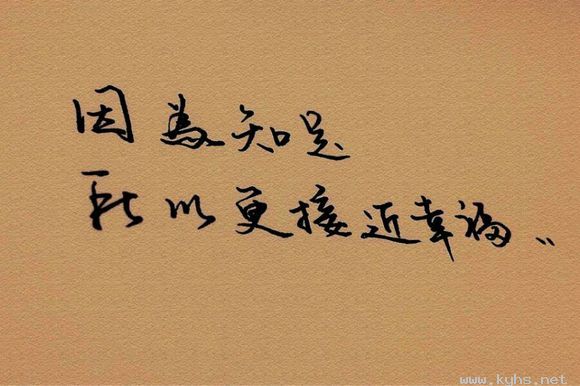 因為知足
所以更接近幸福〃
www.kyhs.net